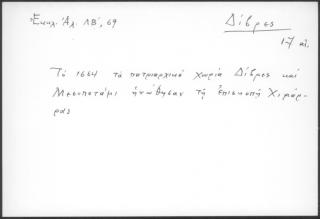 Ἐκκλ. Ἀλ. ΛΒ', 69
Δίβρες
17 αἰ.
Τὸ 1664 τὰ πατριαρχικὰ χωρία Δίβρες καὶ
Μεσοποτάμι ἡνώθησαν τῇ ἐπισκοπῇ Χιμάρ-
ρας